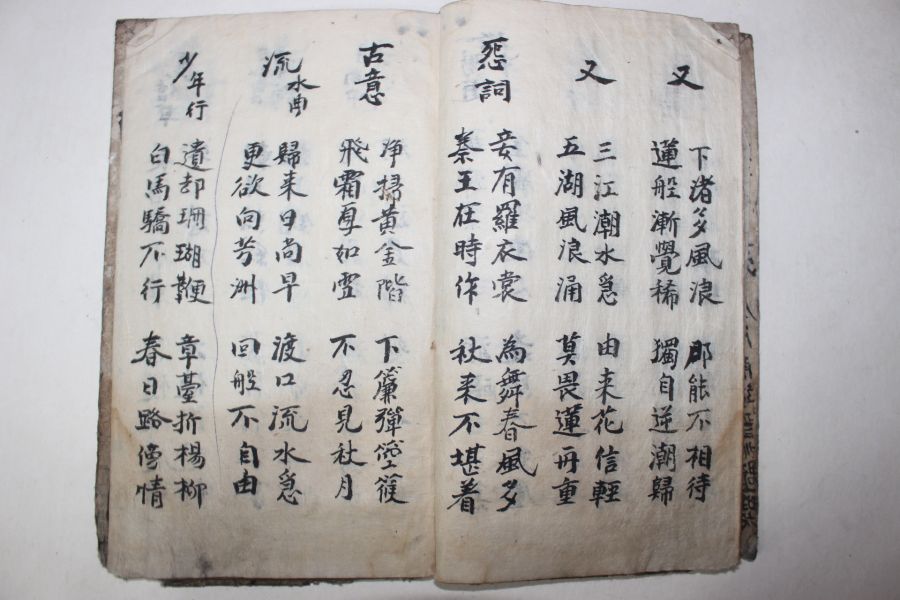 又
下渚多風浪
蓮船漸覺稀
那能不相待
獨自逆潮歸
又
三江潮水急
五湖風浪涌
由来花信輕
莫畏蓮舟重
怨詞
妾有羅衣裳
秦王在時作
為舞春風多
秋来不堪着
古意
净掃黃金階
飛霜厚如雪
下簾彈箜篌
不忍見秋月
流水曲
歸来日尚早
更欲向芳洲
渡口流水急
回船不自由
少年行
遺却珊瑚鞭
白馬驕不行
章臺折楊柳
春日路傍情